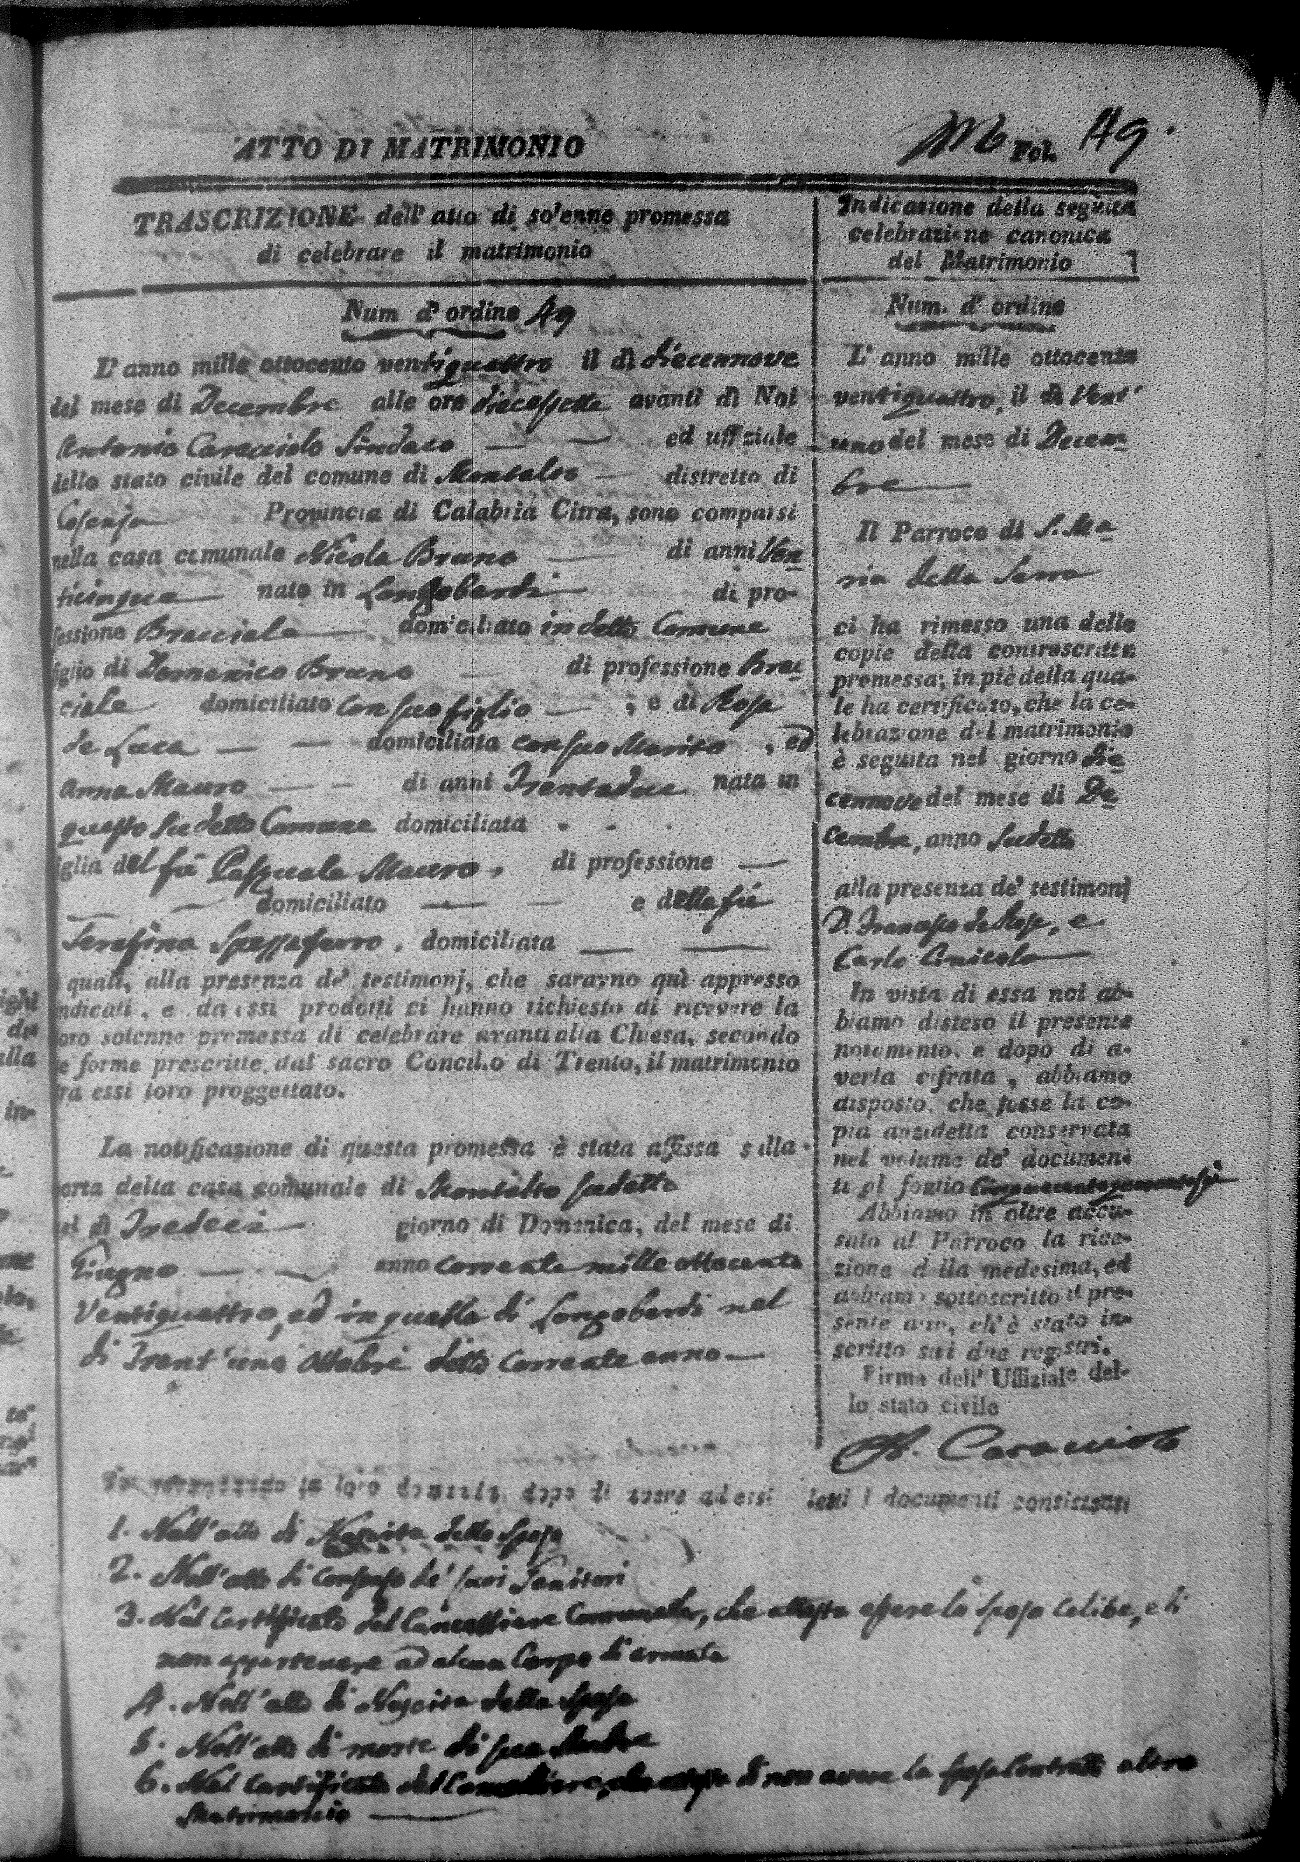 ATTO DI MATRIMONIO
Fol. 49.
TRASCRIZIONE dell' atto di so'enne promessa
di celebrare il matrimonio
Num d' ordine 49
L' anno mille ottocento ventiquattro il di diecennove
del mese di Decembre alle ore diecessette avanti di Noi
Antonio Caracciolo Sindaco ed uffiziale
dello stato civile del comune di Montalto distretto di
Cosenza Provincia di Calabria Citra, sono comparsi
nella casa comunale Nicola Bruno di anni Ven=
ticinque nato in Longobardi di pro-
fessione Bracciale domiciliato in detto Comune
figlio di Domenico Bruno di professione Brac=
ciale domiciliato con suo figlio ; e di Rosa
de Luca domiciliata con suo Marito , ed
Anna Mauro di anni Trentadue nata in
questo sudetto Comune domiciliata
figlia del fu Pasquale Mauro, di professione
domiciliato e della fu
Serafina Spezzaferro, domiciliata
quali, alla presenza de' testimonj, che saranno quì appresso
indicati, e da essi prodotti ci hanno richiesto di ricevere la
loro solenne promessa di celebrare avanti alla Chiesa, secondo
le forme prescritte dal sacro Concilio di Trento, il matrimonio
tra essi loro proggettato.
La notificazione di questa promessa è stata affissa sulla
porta della casa comunale di Montalto sudetto
nel di Tredeci giorno di Domenica, del mese di
Giugno anno corrente mille ottocento
Ventiquattro, ed in quella di Longobardi nel
di Trent'uno Ottobre detto corrente anno
Indicazione della seguita
celebrazione canonica
del Matrimonio
Num. d' ordine
L' anno mille ottocento
ventiquattro, il di Vent'
uno del mese di Decem=
bre
Il Parroco di S. Ma=
ria della Serra
ci ha rimesso una delle
copie della controscritta
promessa; in piè della qua-
le ha certificato, che la ce-
lebrazione del matrimonio
è seguita nel giorno die=
cennove del mese di De=
cembre, anno sudetto
alla presenza de' testimonj
D. Francesco de Rose, e
Carlo
In vista di essa noi ab-
biamo disteso il presente
notamento, e dopo di a-
verla cifrata, abbiamo
disposto, che fosse la co-
pia anzidetta conservata
nel volume de' documen-
ti al foglio
Abbiamo in oltre accu-
sato al Parroco la rice-
zione della medesima, ed
abbiamo sottoscritto il pre-
sente atto, ch' è stato in-
scritto sui due registri.
Firma dell' Uffiziale del-
lo stato civile
A. Caracciolo
loro domanda, dopo di avere ad essi letti i documenti consistenti
1. Nell'atto di Nascita dello sposo
2. Nell'atto di Consenso de' suoi Genitori
3. Nel Certificato del Cancelliere Comunale, che attesta essere lo sposo celibe, e di
non appartenere ad alcun Corpo di armata
4. Nell'atto di Nascita della sposa
5. Nell'atto di morte di suo Padre
6. Nel Certificato del Cancelliere, che attesta di non avere la sposa Contratto altro
Matrimonio